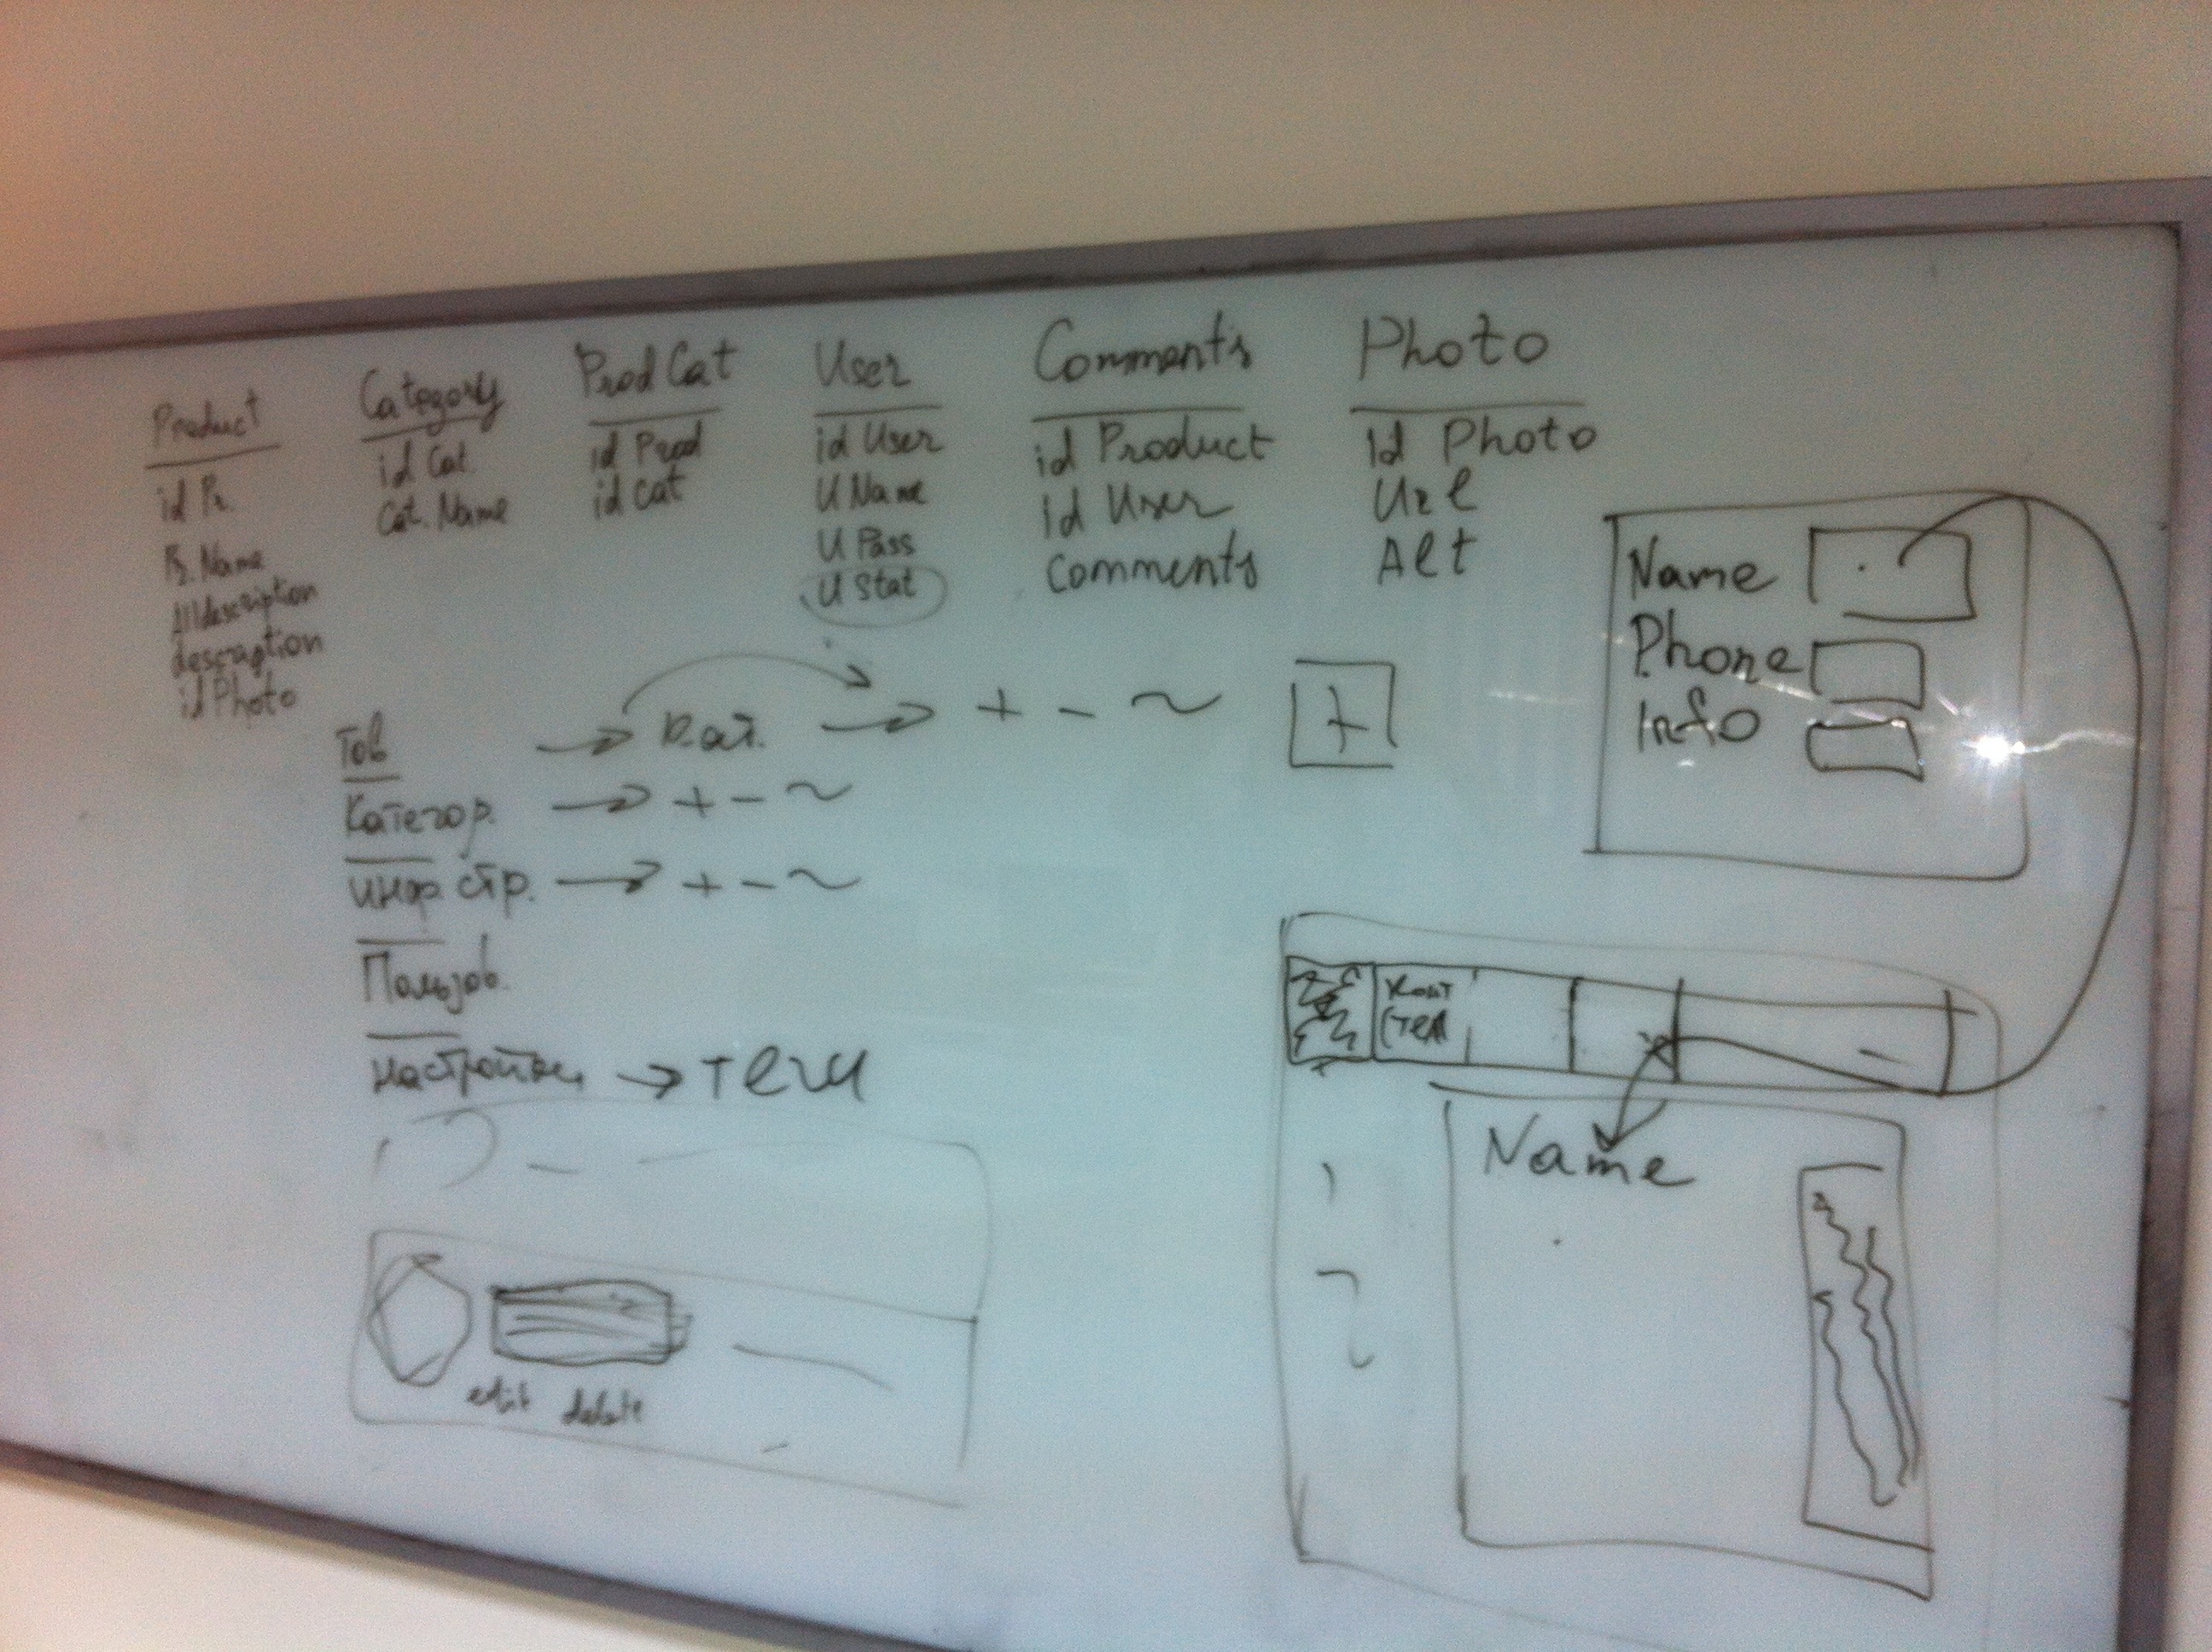 Product
id Pr.
Pr. Name
description
id Photo
Category
id Cat
Cat. Name
Prod Cat
id Prod
id cat
User
id User
U Name
U Pass
U Stat
Comments
id Product
id User
Comments
Photo
id Photo
Url
Alt
Тов → Кат. → + - ~
Категор. → + - ~
инф. стр. → + - ~
Пользов.
настройки → теги
edit delete
+
Name
Phone
Info
Конт
Name